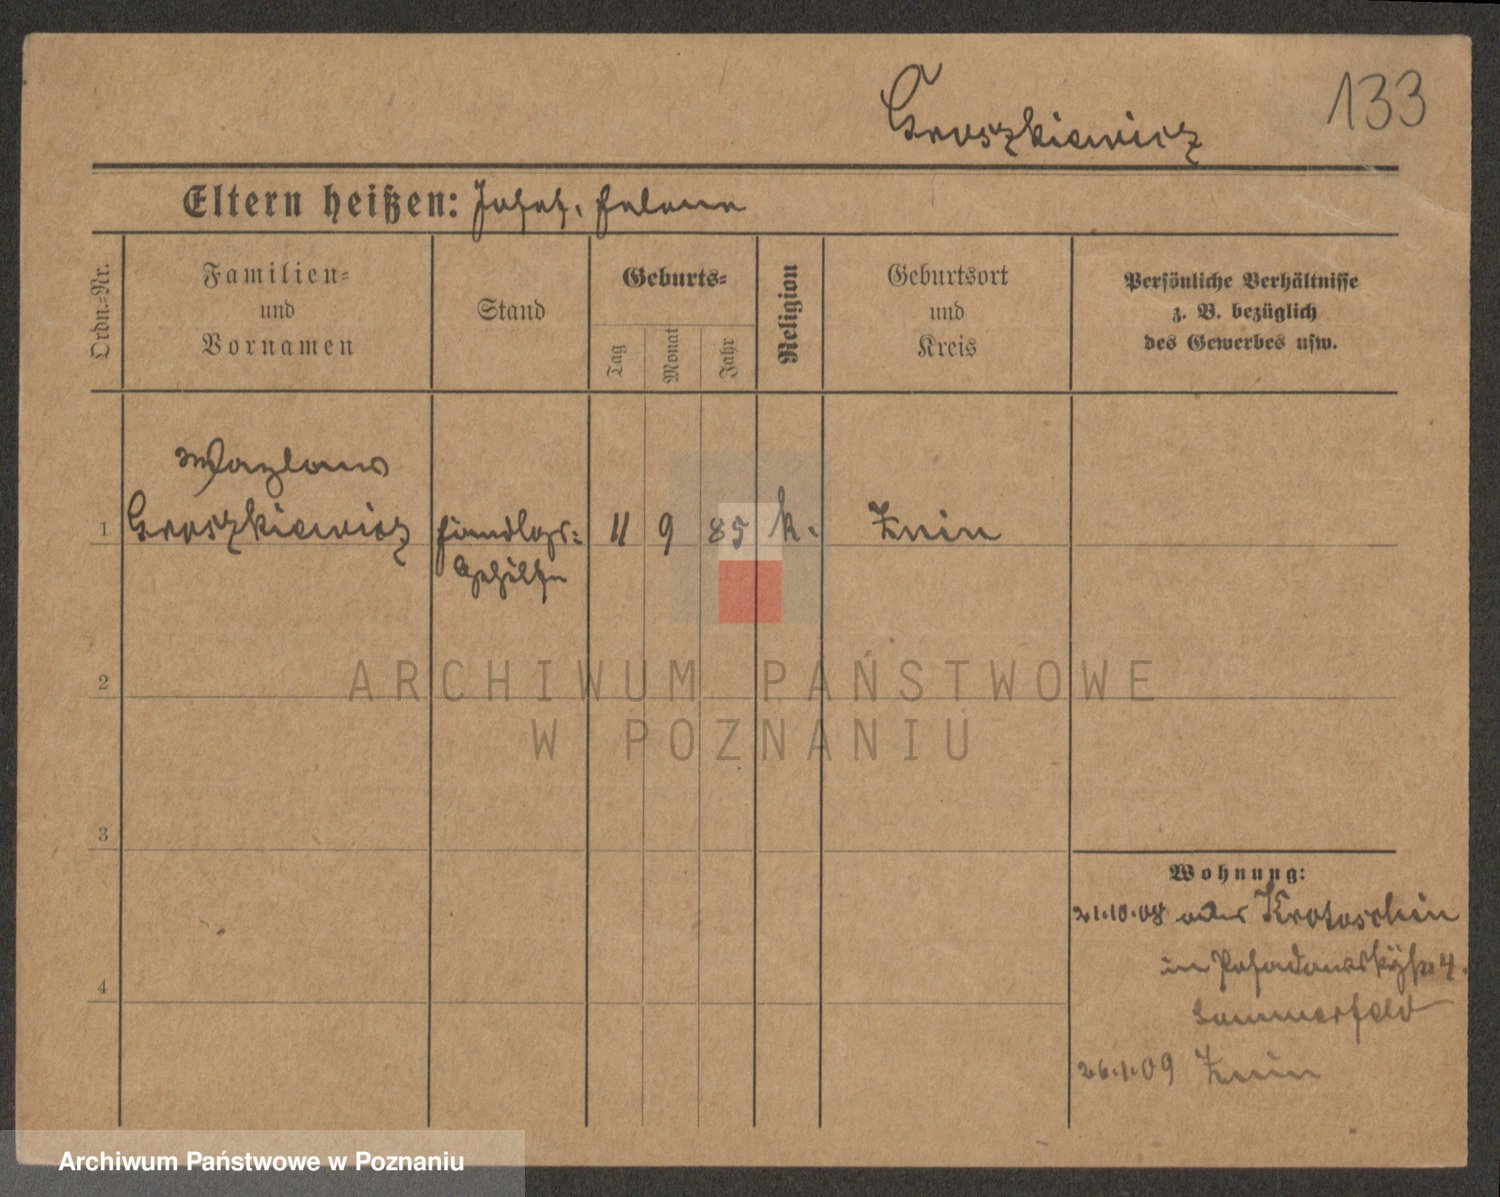 Groszkiewicz
133
Eltern heißen: Josef, Helene
Ordn.-Nr.
Familien-
und
Vornamen
Stand
Geburts-
Tag
Monat
Jahr
Religion
Geburtsort
und
Kreis
Persönliche Verhältnisse
z. B. bezüglich
des Gewerbes usw.
Wazlaus
1 Groszkiewicz Handlgs- 11 9 85 k. Znin
Gehilfe
2
ARCHIWUM PAŃSTWOWE
W POZNANIU
3
Wohnung:
21.10.08 aus Krotoschin
in Posadowskystr 4.
Sommerfeld
4
26.1.09 Znin
Archiwum Państwowe w Poznaniu